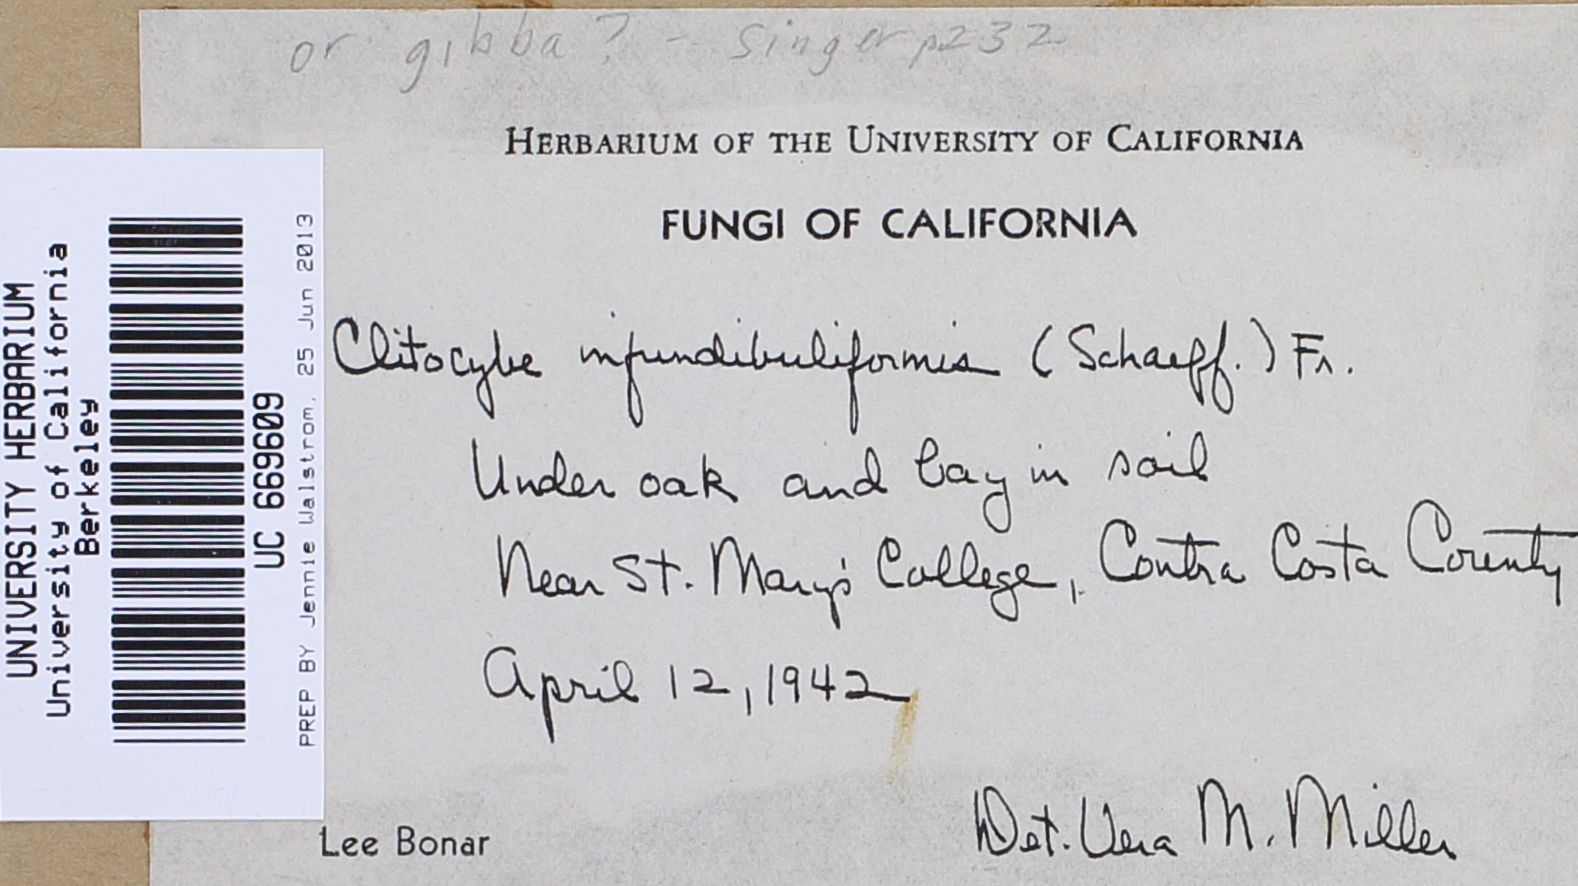 or gibba? - Singer p232
HERBARIUM OF THE UNIVERSITY OF CALIFORNIA
FUNGI OF CALIFORNIA
Clitocybe infundibuliformis (Schaeff.) Fr.
Under oak and bay in soil
Near St. Mary's College, Contra Costa County
April 12, 1942
Lee Bonar
Det. Vera M. Miller
UNIVERSITY HERBARIUM
University of California
Berkeley
UC 669609
PREP BY Jennie Walstrom, 25 Jun 2013